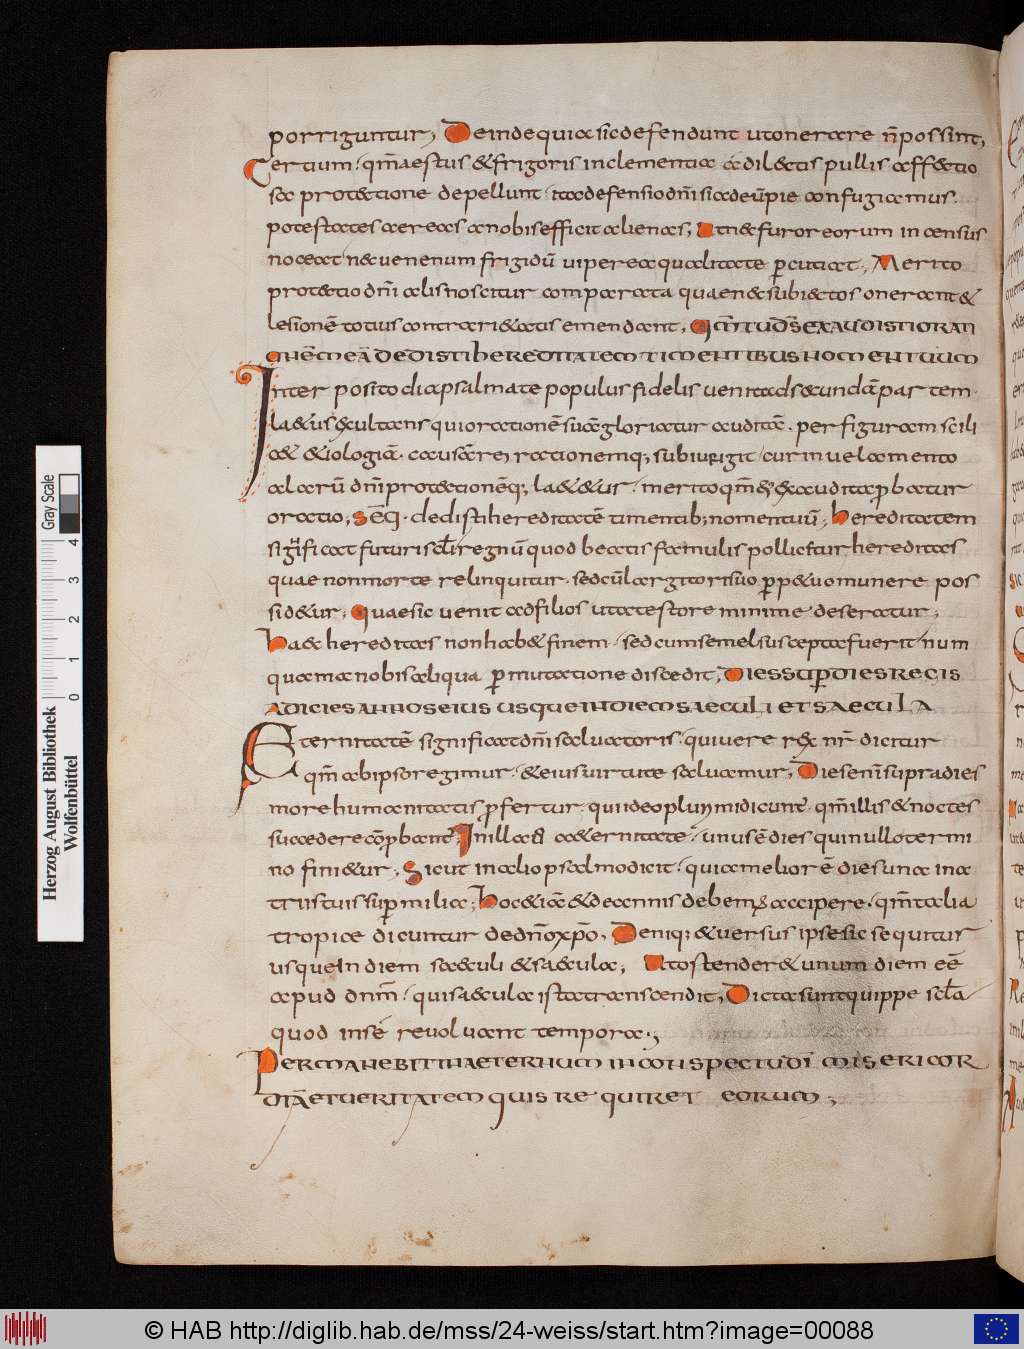 porriguntur, Deinde quia sic defendunt ut onerare n̄ possint,
Tertium· qm̄ aestus & frigoris inclementia a dil&is pullis affectio
sa protectione depellunt· ita defensio dn̄i si ad eū pie confugiamus·
potestates aereas a nobis efficit alienas, Ut n& furor eorum incensus
noceat nec venenum frigidū vipereaqualitate p̄cutiat, Merito
protectio dn̄i alis noscitur comparata quae n& subiectos onerant &
lesionē totius contrari&atis emendant, Qm̄ tu ds̄ exaudisti orati
onē meā dedisti hereditatem timentibus nomen tuum
Inter posito diapsalmate populus fidelis venit ad secundā partem·
la&us & exultans qui orationē suā gloriatur auditā· per figuram scili
c& &iologiā· causā & rationemq; subiungit· cur in velamento
alarū dn̄i protectionēq; la&&ur· merito qm̄ exaudita p̄batur
oratio, Seq̄· dedisti hereditatē timentib; nomen tuū, Hereditatem
significat futuri scl̄i regnū quod beatis famulis pollicetur hereditas
quae non morte relinquitur· sed cū largitori suo p̄p&uo munere pos
sid&ur, Quae sic venit ad filios ut a testore minime deseratur,
Haec hereditas non hab& finem· sed cum semel suscepta fuerit num
quam a nobis aliqua p̄mutatione discedit, Dies sup̄ dies regis
adicies annos eius usque in diem saeculi et saecula
Eternitatē significat dn̄i salvatoris· qui vere rex nr̄ dicitur
qm̄ ab ipso regimur· & eius virtute salvamur, Dies enī supra dies
more humanitatis p̄fertur· qui ideo plurimi dicunt· qm̄ illis & noctes
succedere cōp̄bant, In illa aeternitate· unus ē dies qui nullo termi
no fini&ur, Sicut in alio psalmo dicit· quia melior ē dies una in a
triis tuis sup̄ milia, Hoc &iā & de annis debemus accipere· qm̄ talia
tropice dicuntur de dn̄o xp̄o, Deniq; & versus ipse sic sequitur
usque in diem saeculi & saeculae, Ut ostender& unum diem eē
apud dnm̄· qui saeculae ista transcendit, Dicta sunt quippe scl̄a
quod in se revolvant tempora·,
Permanebit in aeternum in conspectu dī misericor
diā et veritatem quis requiret eorum,
Gray Scale
4
3
2
1
0
Herzog August Bibliothek
Wolfenbüttel
© HAB http://diglib.hab.de/mss/24-weiss/start.htm?image=00088